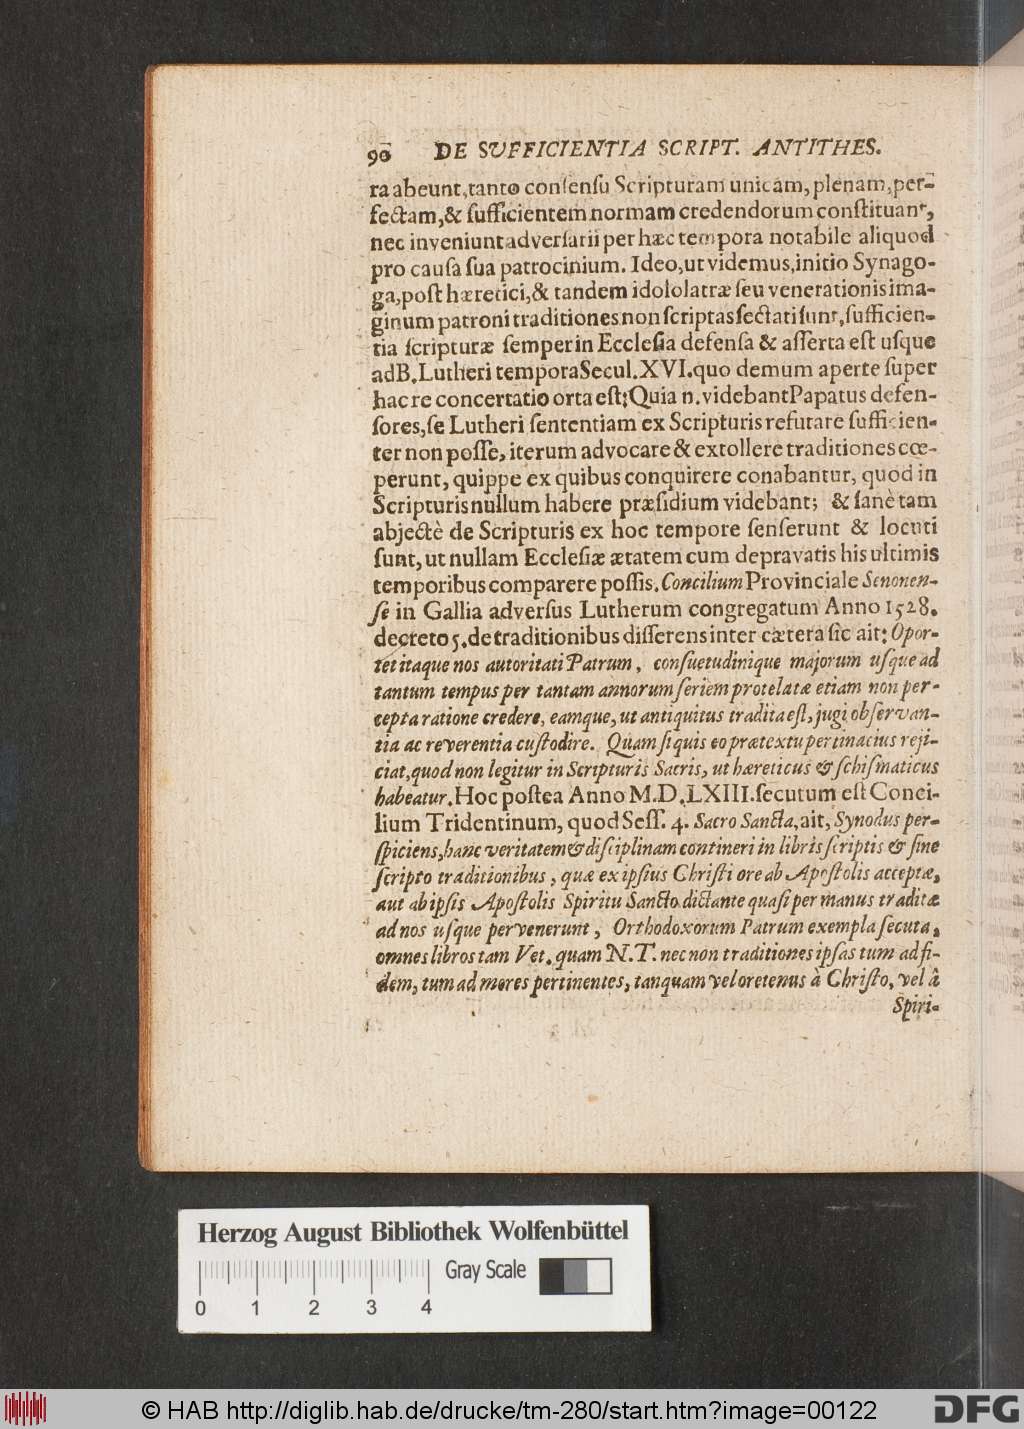 90 DE SUFFICIENTIA SCRIPT. ANTITHES.
ra abeunt, tanto conſenſu Scripturam unicam, plenam, per-
fectam, & ſufficientem normam credendorum conſtituant,
nec inveniunt adverſarii per hæc tempora notabile aliquod
pro cauſa ſua patrocinium. Ideo, ut videmus, initio Synago-
ga, poſt hæretici, & tandem idololatræ ſeu venerationis ima-
ginum patroni traditiones non ſcriptas ſectati ſunt, ſufficien-
tia ſcripturæ ſemper in Eccleſia defenſa & aſſerta eſt uſque
ad B. Lutheri tempora Secul. XVI. quo demum aperte ſuper
hac re concertatio orta eſt: Quia n. videbant Papatus defen-
ſores, ſe Lutheri ſententiam ex Scripturis refutare ſufficien-
ter non poſſe, iterum advocare & extollere traditiones cœ-
perunt, quippe ex quibus conquirere conabantur, quod in
Scripturis nullum habere præſidium videbant; & ſanè tam
abjectè de Scripturis ex hoc tempore ſenſerunt & locuti
ſunt, ut nullam Eccleſiæ ætatem cum depravatis his ultimis
temporibus comparere poſſis. Concilium Provinciale Senonen-
ſe in Gallia adverſus Lutherum congregatum Anno 1528.
decreto 5. de traditionibus diſſerens inter cætera ſic ait: Opor-
tet itaque nos autoritati Patrum, conſuetudinique majorum uſque ad
tantum tempus per tantam annorum ſeriem protelatæ etiam non per-
cepta ratione credere, eamque, ut antiquitus tradita eſt, jugi obſervan-
tia ac reverentia cuſtodire. Quam ſi quis eo prætextu pertinacius reji-
ciat, quod non legitur in Scripturis Sacris, ut hæreticus & ſchiſmaticus
habeatur. Hoc poſtea Anno M.D.LXIII. ſecutum eſt Conci-
lium Tridentinum, quod Seſſ. 4. Sacro Sancta, ait, Synodus per-
ſpiciens, hanc veritatem & diſciplinam contineri in libris ſcriptis & ſine
ſcripto traditionibus, quæ ex ipſius Chriſti ore ab Apoſtolis acceptæ,
aut ab ipſis Apoſtolis Spiritu Sancto dictante quaſi per manus traditæ
ad nos uſque pervenerunt, Orthodoxorum Patrum exempla ſecuta,
omnes libros tam Vet. quam N.T. nec non traditiones ipſas tum ad fi-
dem, tum ad mores pertinentes, tanquam vel oretenus à Chriſto, vel â
Spiri-
Herzog August Bibliothek Wolfenbüttel
Gray Scale
0 1 2 3 4
© HAB http://diglib.hab.de/drucke/tm-280/start.htm?image=00122
DFG